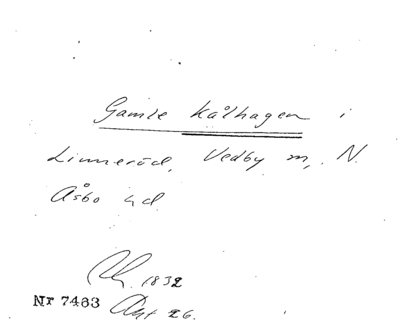 Gamle Kålhagen i
Linneröd, Vedby m, N.
Åsbo hd
1832
Nr 7463 Akt 26.